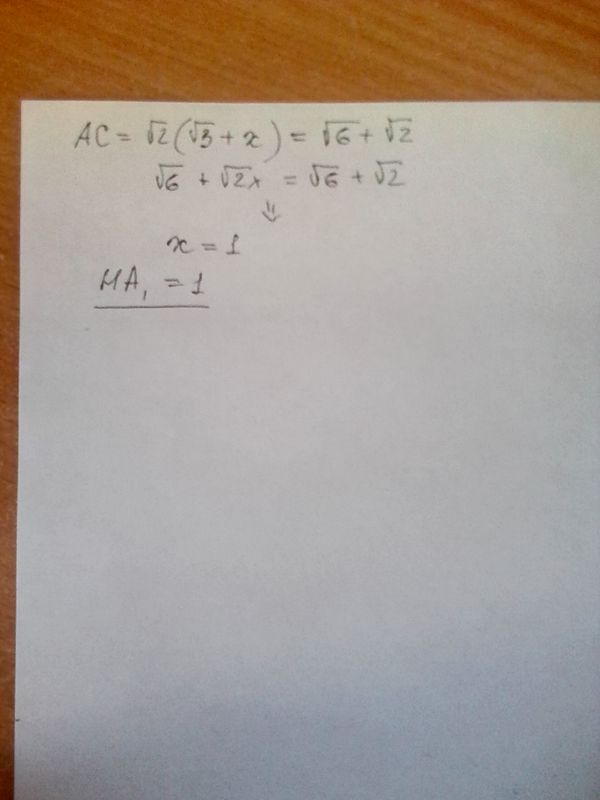 AC = √2(√3 + x) = √6 + √2
√6 + √2x = √6 + √2
⇓
x = 1
MA₁ = 1